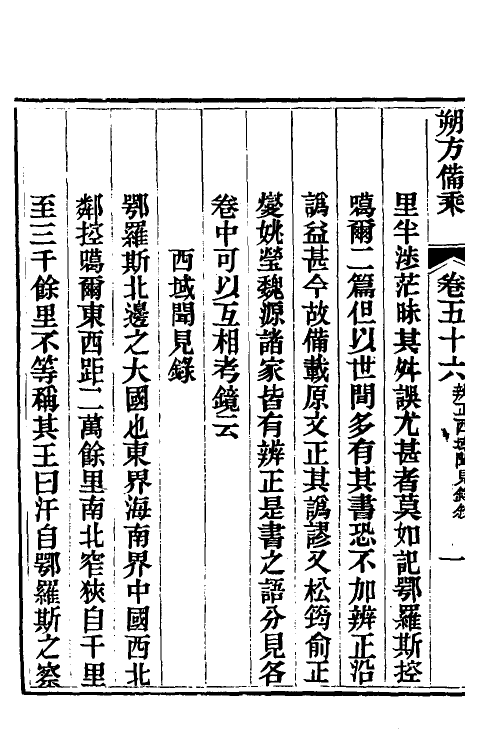 朔方備乘
卷五十六
辨正西域聞見錄叙
一
里半涉茫昧其舛誤尤甚者莫如記鄂羅斯控
噶爾二篇但以世間多有其書恐不加辨正沿
譌益甚今故備載原文正其譌謬又松筠俞正
燮姚瑩魏源諸家皆有辨正是書之語分見各
卷中可以互相考鏡云
西域聞見錄
鄂羅斯北邊之大國也東界海南界中國西北
鄰控噶爾東西距二萬餘里南北窄狹自千里
至三千餘里不等稱其王曰汗自鄂羅斯之察